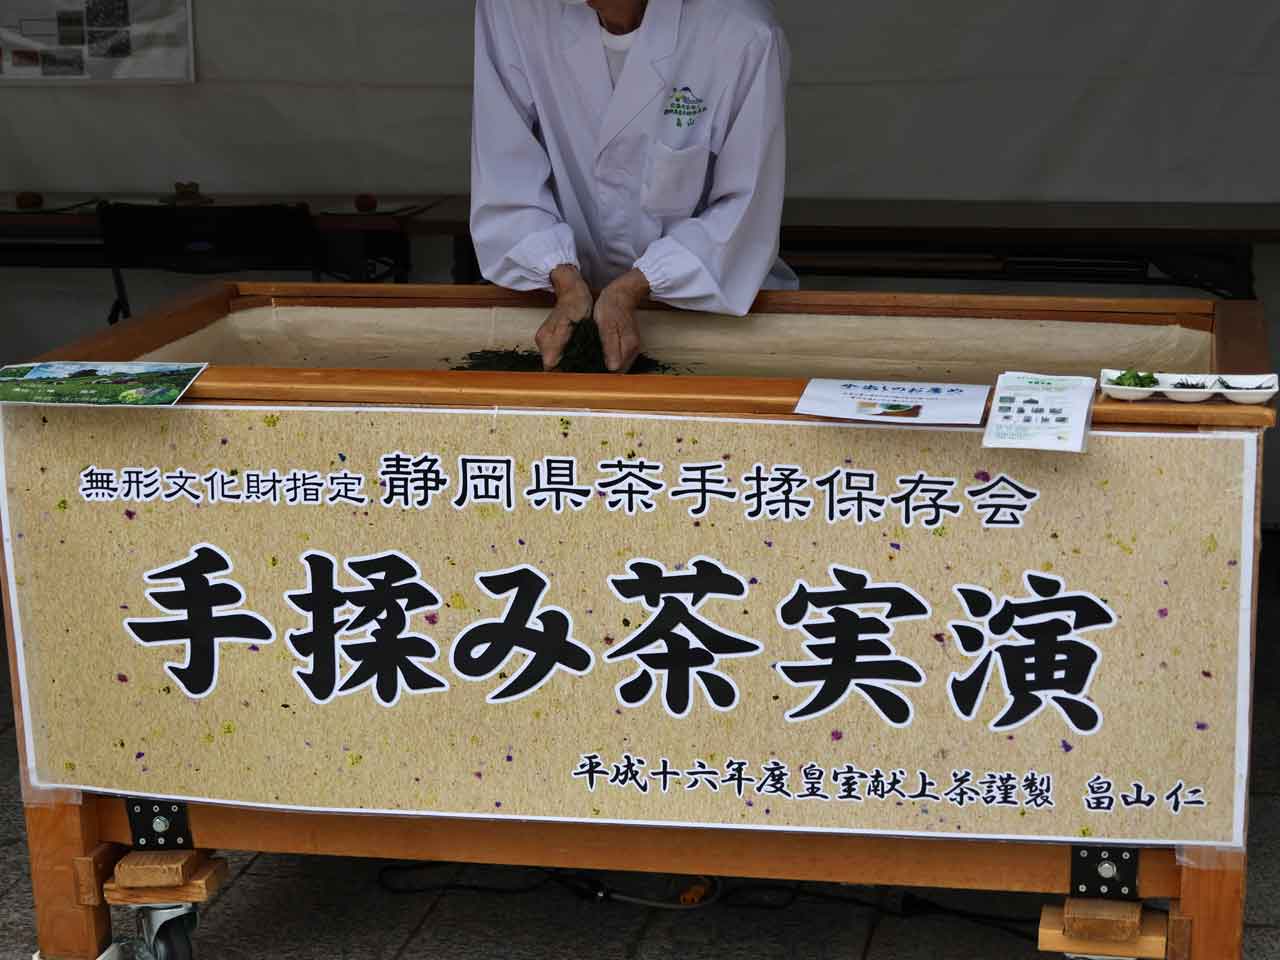 畠山
生出しのお薦め
無形文化財指定 静岡県茶手揉保存会
手揉み茶実演
平成十六年度皇室献上茶謹製 畠山 仁